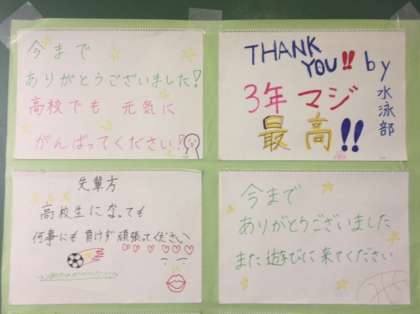 今まで
ありがとうございました!
高校でも 元気に
がんばってください!
THANK
YOU!! by
水泳部
3年 マジ
最高!!
先輩方
高校生になっても
何事にも 負けず 頑張ってください
今まで
ありがとうございました
また遊びに来てください